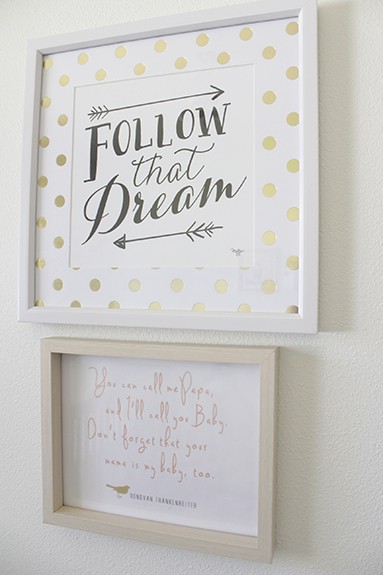 Follow
that
Dream
You can call me Papa,
and I'll call you Baby.
Don't forget that your
mama is my baby, too.
DONOVAN FRANKENREITER